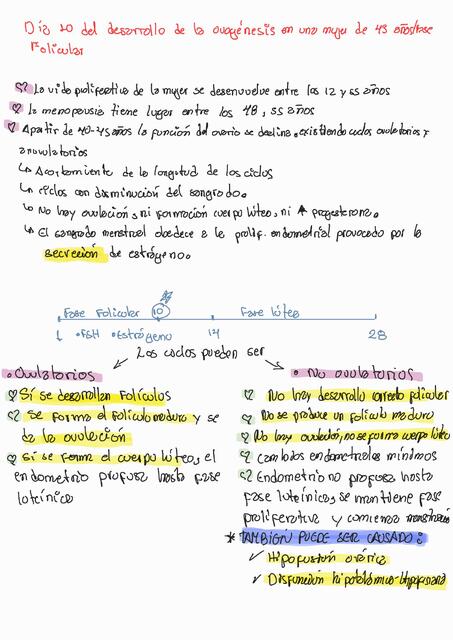 Día 10 del desarrollo de la ovogénesis en una mujer de 43 años/fase
Folicular
La vida proliferativa de la mujer se desenvuelve entre los 12 y 55 años
La menopausia tiene lugar entre los 48, 55 años
A partir de 40-45 años la función del ovario se declina, existiendo ciclos ovulatorios y
anovulatorios
↳ Acortamiento de la longitud de los ciclos
↳ ciclos con disminución del sangrado.
↳ No hay ovulación, ni formación cuerpo lúteo, ni ↑ progesterona.
↳ El sangrado menstrual obedece a la prolif. endometrial provocado por la
secreción de estrógeno.
Fase Folicular 10 Fase lútea
1 •FSH •Estrógeno 14 28
Los ciclos pueden ser
• Ovulatorios
Sí se desarrollan folículos
Se forma el folículo maduro y se
da la ovulación
Sí se forma el cuerpo lúteo, el
endometrio profusa hasta fase
luteínica
• No ovulatorios
No hay desarrollo correcto folicular
No se produce un folículo maduro
No hay ovulación, no se forma cuerpo lúteo
Cambios endometriales mínimos
Endometrio no profusa hasta
fase luteínica, se mantiene fase
proliferativa y comienza menstruación
* TAMBIÉN PUEDE SER CAUSADO:
✓ Hipofunción ovárica
✓ Disfunción hipotalámico-hipofisaria